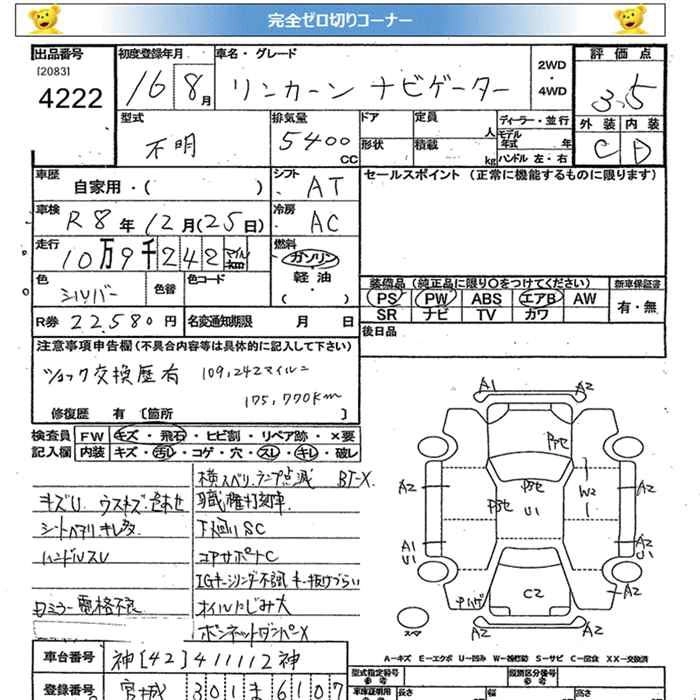 完全ゼロ切りコーナー
出品番号 初度登録年月 車名・グレード 2WD ・ 4WD 評価点
[2083]
4222 16 8月 リンカーン ナビゲーター 3.5
型式 不明 排気量 5400 CC ドア 形状 定員 人 積載 kg ディーラー・並行 モデル 年式 年 ハンドル 左・右 外装 内装
C D
車歴 自家用・( ) シフト AT セールスポイント (正常に機能するものに限ります)
車検 R8年12月(25日) 冷房 AC
走行 10万9千242 マイル km 燃料 ガソリン ・ 軽油 ( )
色 シルバー 色替 色コード
装備品 (純正品に限り○をつけてください) 新車保証書
PS PW ABS エアB AW 有・無
SR ナビ TV カワ
R券 22,580円 名変通知期限 月 日 後日品
注意事項申告欄(不具合内容等は具体的に記入して下さい)
ショック交換歴有 109,242マイル=
175,770km
修復歴 有 〔箇所 〕
検査員 FW キズ・飛石・ヒビ割・リペア跡・×要
記入欄 内装 キズ・汚レ・コゲ・穴・スレ・キレ・破レ
横スベリ.ランプ点滅 BT-X
キズU ウスキズ.色あせ 職権打刻車
下廻りSC
ハンドルスU コアサポートC
IGキーシリンダー不調 キー抜けづらい
ロミラー電格不良 オイルにじみ大
ボンネットダンパーX
A1 A2
A2 W2 A2
U1
A1 U1 A2 U1
C2 A2
スペア A2 A2
A=キズ E=エクボ U=凹み W=補修跡 S=サビ C=腐食 XX=交換済
車台番号 神[42]411112神 型式指定番号 参考 類別区分番号 参考
登録番号 宮城 301 ま 6107 車庫証明用 参考 長さ 幅 高さ